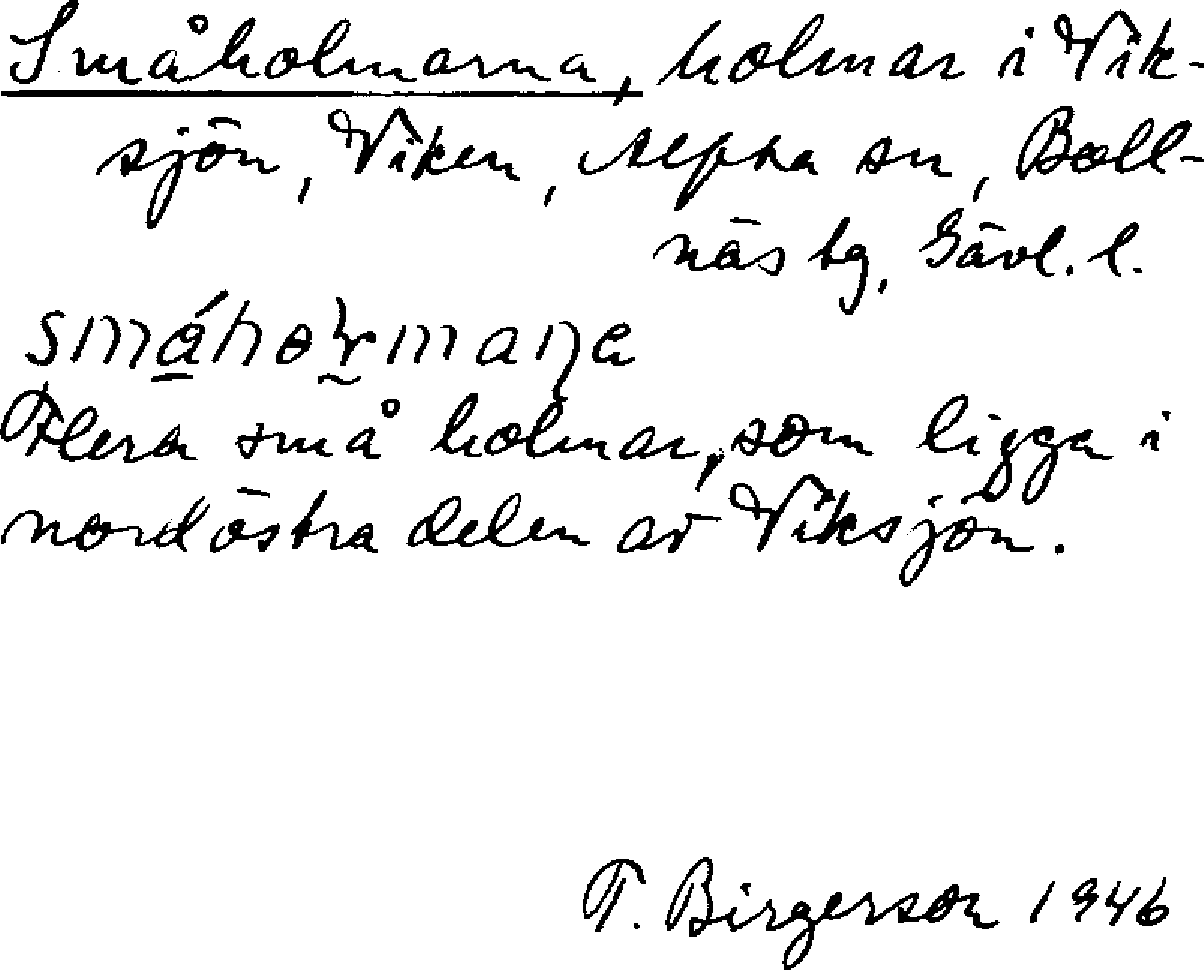 Småholmarna, holmar i Vik-
sjön, Viken, Alfta sn, Boll-
näs tg, Gävl. l.
Flera små holmar, som ligga i
nordöstra delen av Viksjön.
T. Birgerson 1946